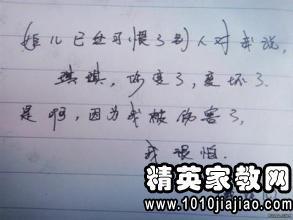 如儿已经可惯了别人对我说,
琪琪,你变了,变坏了.
是啊,因为我被伤害了,
我很怕.
精英家教网
www.1010jiajiao.com